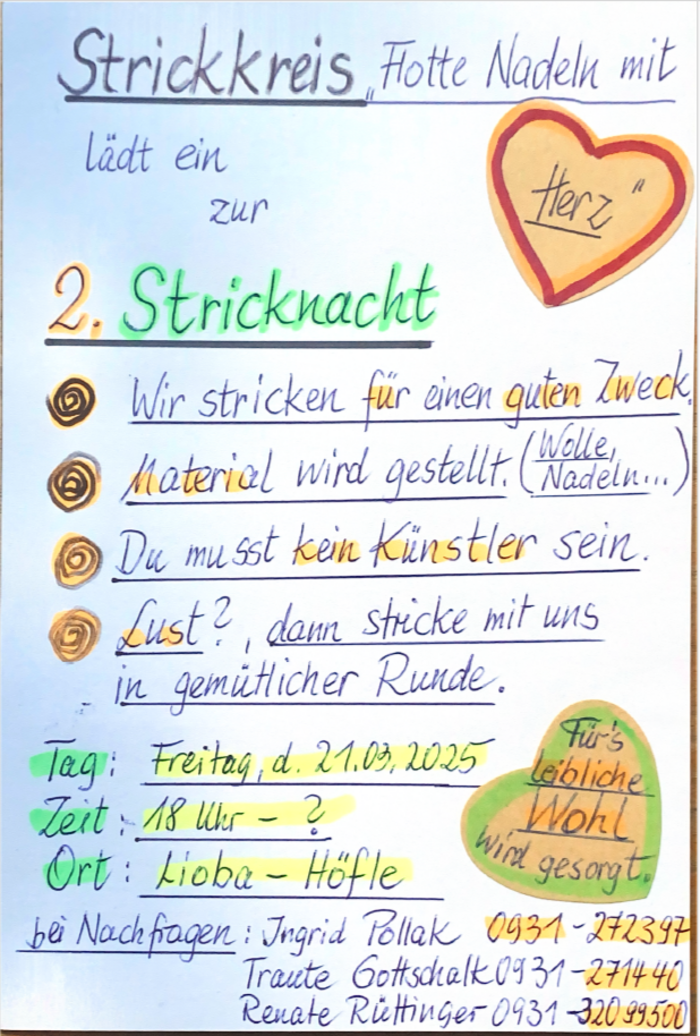 Strickkreis „Flotte Nadeln mit
Herz"
lädt ein
zur
2. Stricknacht
Wir stricken für einen guten Zweck.
Material wird gestellt. (Wolle, Nadeln...)
Du musst kein Künstler sein.
Lust?, dann stricke mit uns
in gemütlicher Runde.
Tag: Freitag, d. 21.03.2025
Zeit: 18 Uhr - ?
Ort: Lioba - Höfle
Für's
leibliche
Wohl
wird gesorgt.
bei Nachfragen: Ingrid Pollak 0931-272397
Traute Gottschalk 0931-271440
Renate Rüttinger 0931-32099500